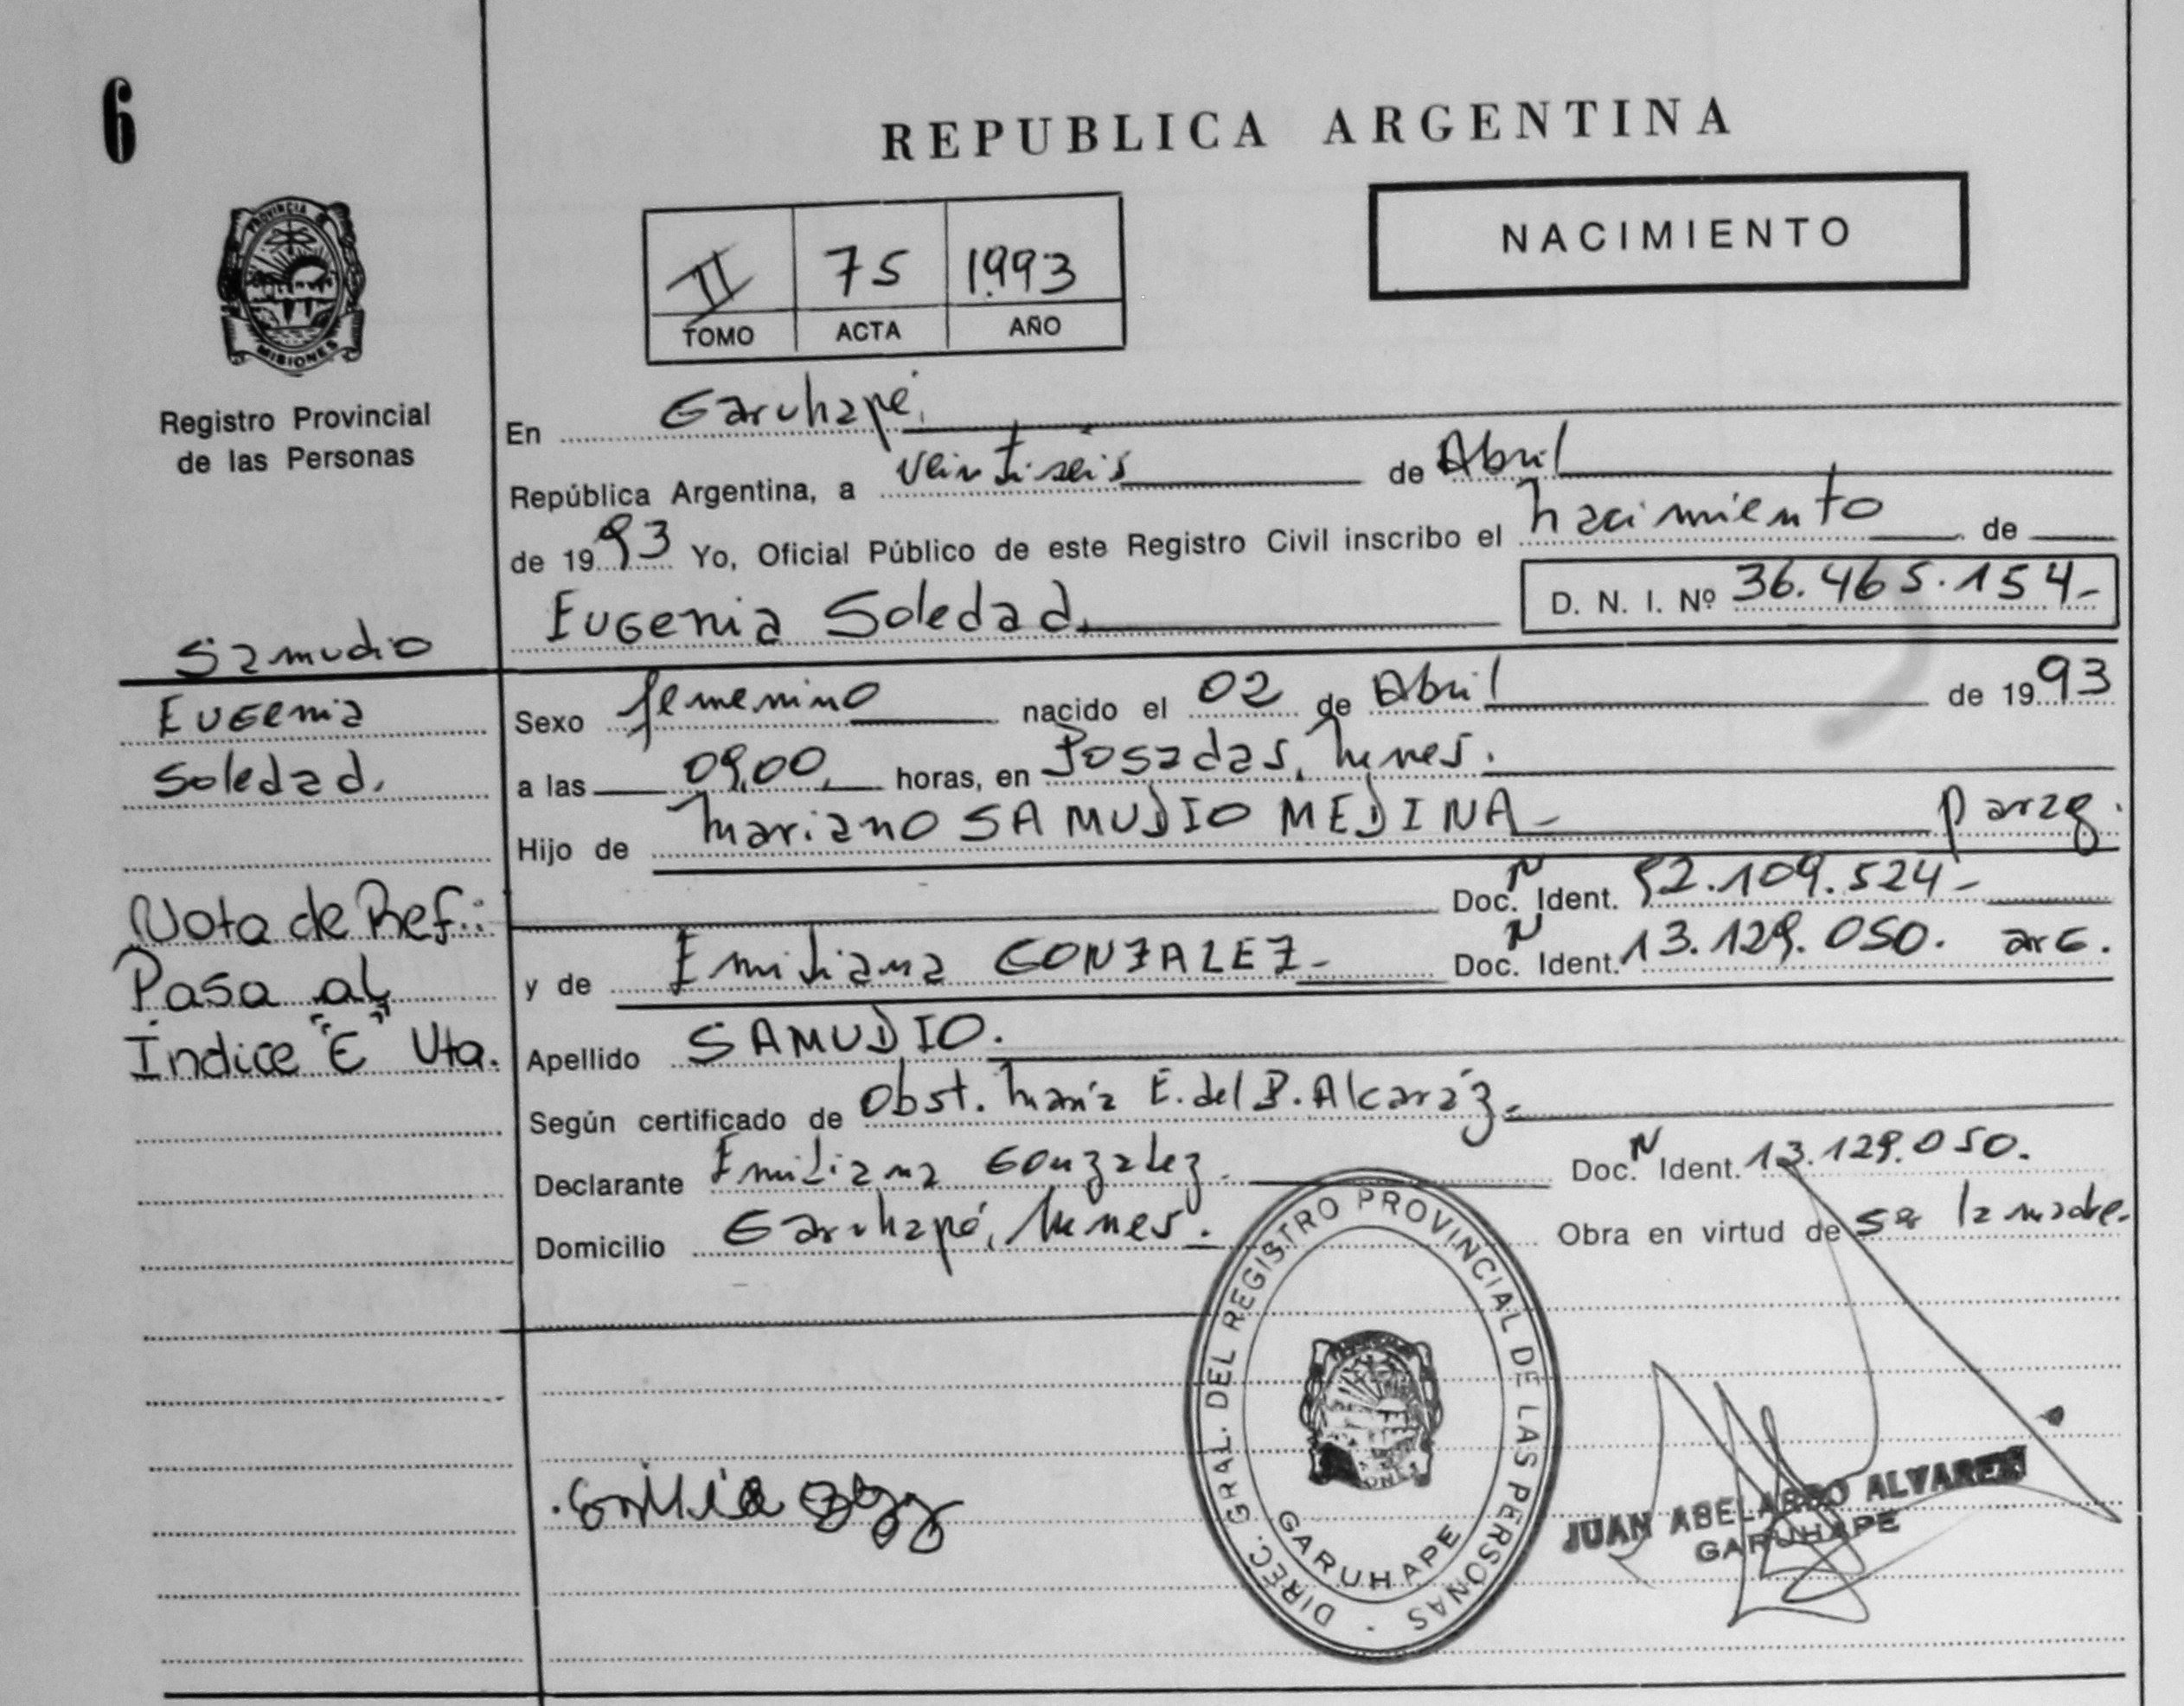 6
REPUBLICA ARGENTINA
NACIMIENTO
II 75 1993
TOMO ACTA AÑO
PROVINCIA DE
MISIONES
Registro Provincial
de las Personas
En Garuhapé,
República Argentina, a veintiseis de Abril
de 1993 Yo, Oficial Público de este Registro Civil inscribo el nacimiento de
Eugenia Soledad. D. N. I. Nº 36.465.154-
Samudio
Eugenia
Soledad.
Nota de Ref.:
Pasa al
Indice "E" Vta.
Sexo femenino nacido el 02 de Abril de 1993
a las 09,00, horas, en Posadas, Mnes.
Hijo de Mariano SAMUDIO MEDINA- parag.
Doc. N Ident. 92.109.524-
y de Emiliana GONZALEZ- Doc. N Ident. 13.129.050. arg.
Apellido SAMUDIO.
Según certificado de Obst. María E. del B. Alcaráz-
Declarante Emiliana Gonzalez. Doc. N Ident. 13.129.050.
Domicilio Garuhapé, Mnes. Obra en virtud de ser la madre.
DIREC. GRAL. DEL REGISTRO PROVINCIAL DE LAS PERSONAS -
GARUHAPE
JUAN ABELARDO ALVAREZ
GARUHAPE